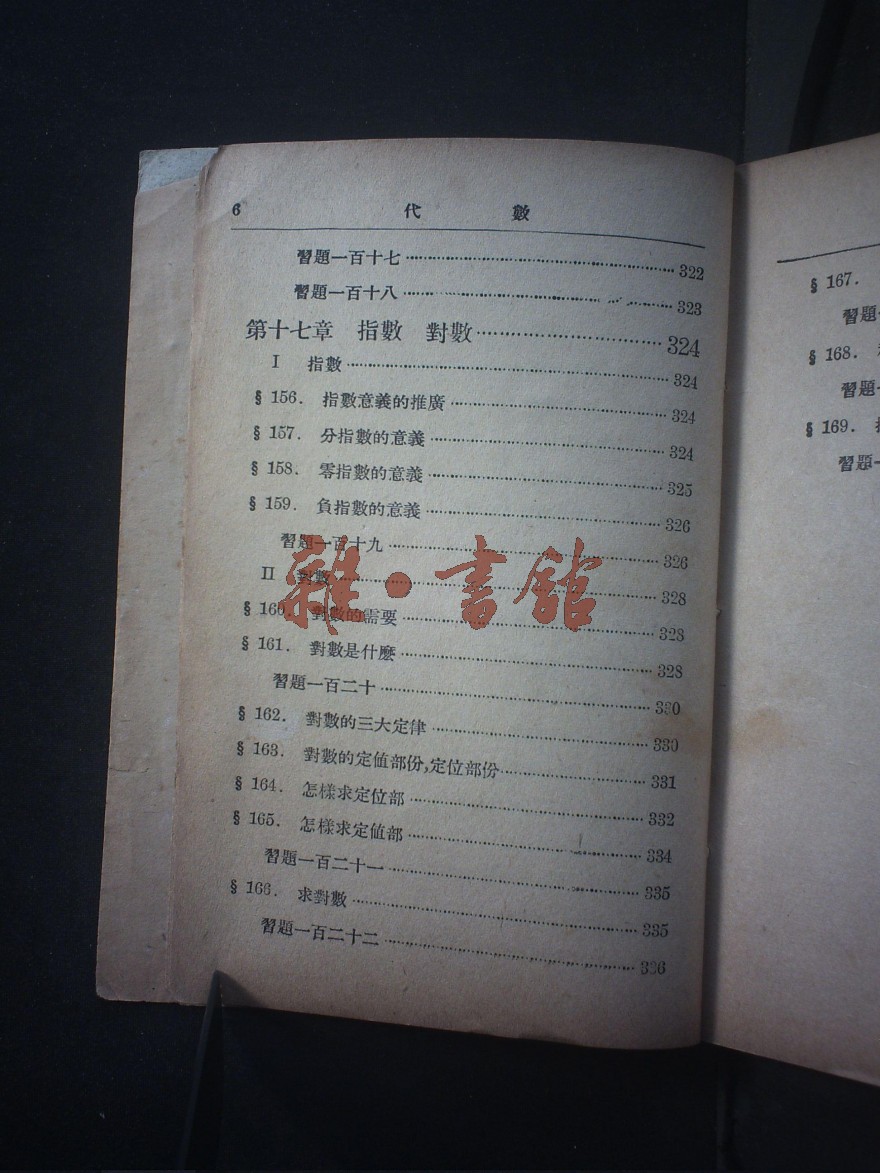 6 代 數
習題一百十七 322
習題一百十八 323
第十七章 指數 對數 324
I 指數 324
§ 156. 指數意義的推廣 324
§ 157. 分指數的意義 324
§ 158. 零指數的意義 325
§ 159. 負指數的意義 326
習題一百十九 326
II 對數 328
§ 160. 對數的需要 328
§ 161. 對數是什麽 328
習題一百二十 330
§ 162. 對數的三大定律 330
§ 163. 對數的定值部份,定位部份 331
§ 164. 怎樣求定位部 332
§ 165. 怎樣求定值部 334
習題一百二十一 335
§ 166. 求對數 335
習題一百二十二 336
雜·書館
§ 167.
習題一
§ 168.
習題一
§ 169.
習題一